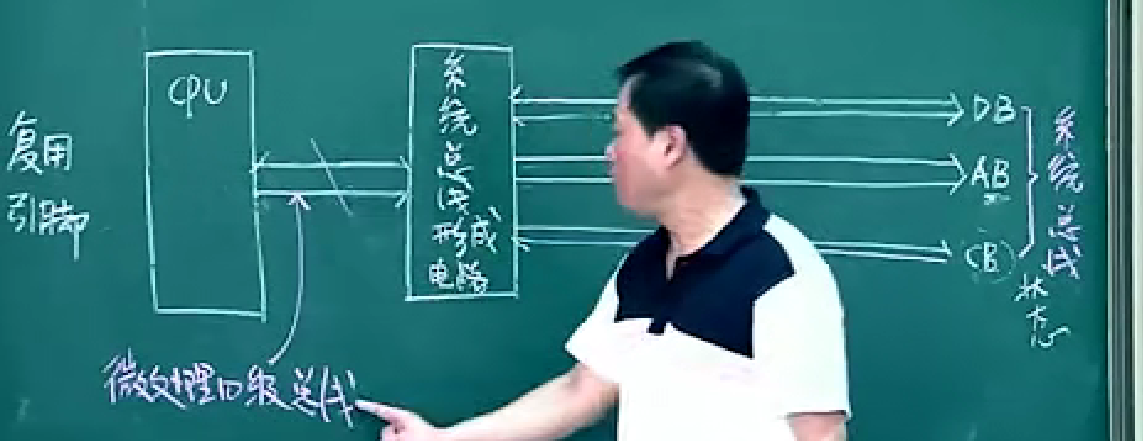 复用
引脚
CPU
系统总线形成
电路
DB
AB
CB
系统总线
状态
微处理口级总线